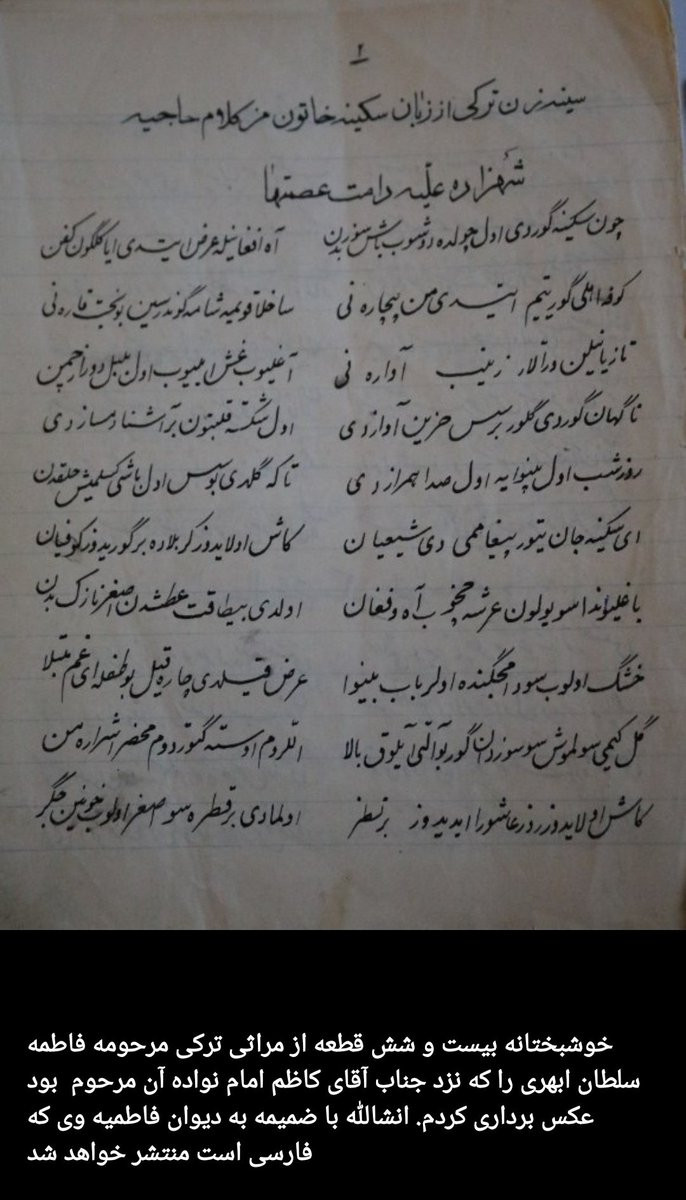 ۲
سینه زن ترکی از زبان سکینه خاتون من کلام حاجیه
شهزاده علیه دامت عصمتها
چون سکینه گوردی اول چولده دوشوب باش سوز بدن آه افغانیله عرض ایتدی ایا گلگون کفن
کوفه اهلی گور یتیم ایتدی من بیچاره نی ساخلا قویمیه شامه گوندرسین بو بخت قاره نی
تازیانیلین ورالار زینب آواره نی آغلیوب غش ایلیوب اول بلبل دور از چمن
ناگهان گوردی گلور بر سس حزین آوازدی اول شکسته قلبتون بر آشنا دمسازدی
روز شب اول بینوایه اول صدا همرازدی تا که گلدی بو سس اول باشی کسلمیش حلقدن
ای سکینه جان یتور پیغاممی دی شیعیان کاش اولایدوز کربلاده بر گوریدوز کوفیان
باغلیوبلار سو یولون عرشه چخوب آه و فغان اولدی بیطاقت عطشدن اصغر نازک بدن
خشگ اولوب سود امجگنده اولر باب بینوا عرض قیلدی چاره قیل بو طفله ای غم مبتلا
گل کیمی سولموش سوسوزدان گور بو آلتی آیلوق بالا اللروم اوسته گتوردوم محضر اشراره من
کاش اولایدوز روز عاشورا ایدیدوز بر نظر اولمادی بر قطره سو اصغر اولوب خونین جگر
خوشبختانه بیست و شش قطعه از مراثی ترکی مرحومه فاطمه
سلطان ابهری را که نزد جناب آقای کاظم امام نواده آن مرحوم بود
عکس برداری کردم. انشالله با ضمیمه به دیوان فاطمیه وی که
فارسی است منتشر خواهد شد